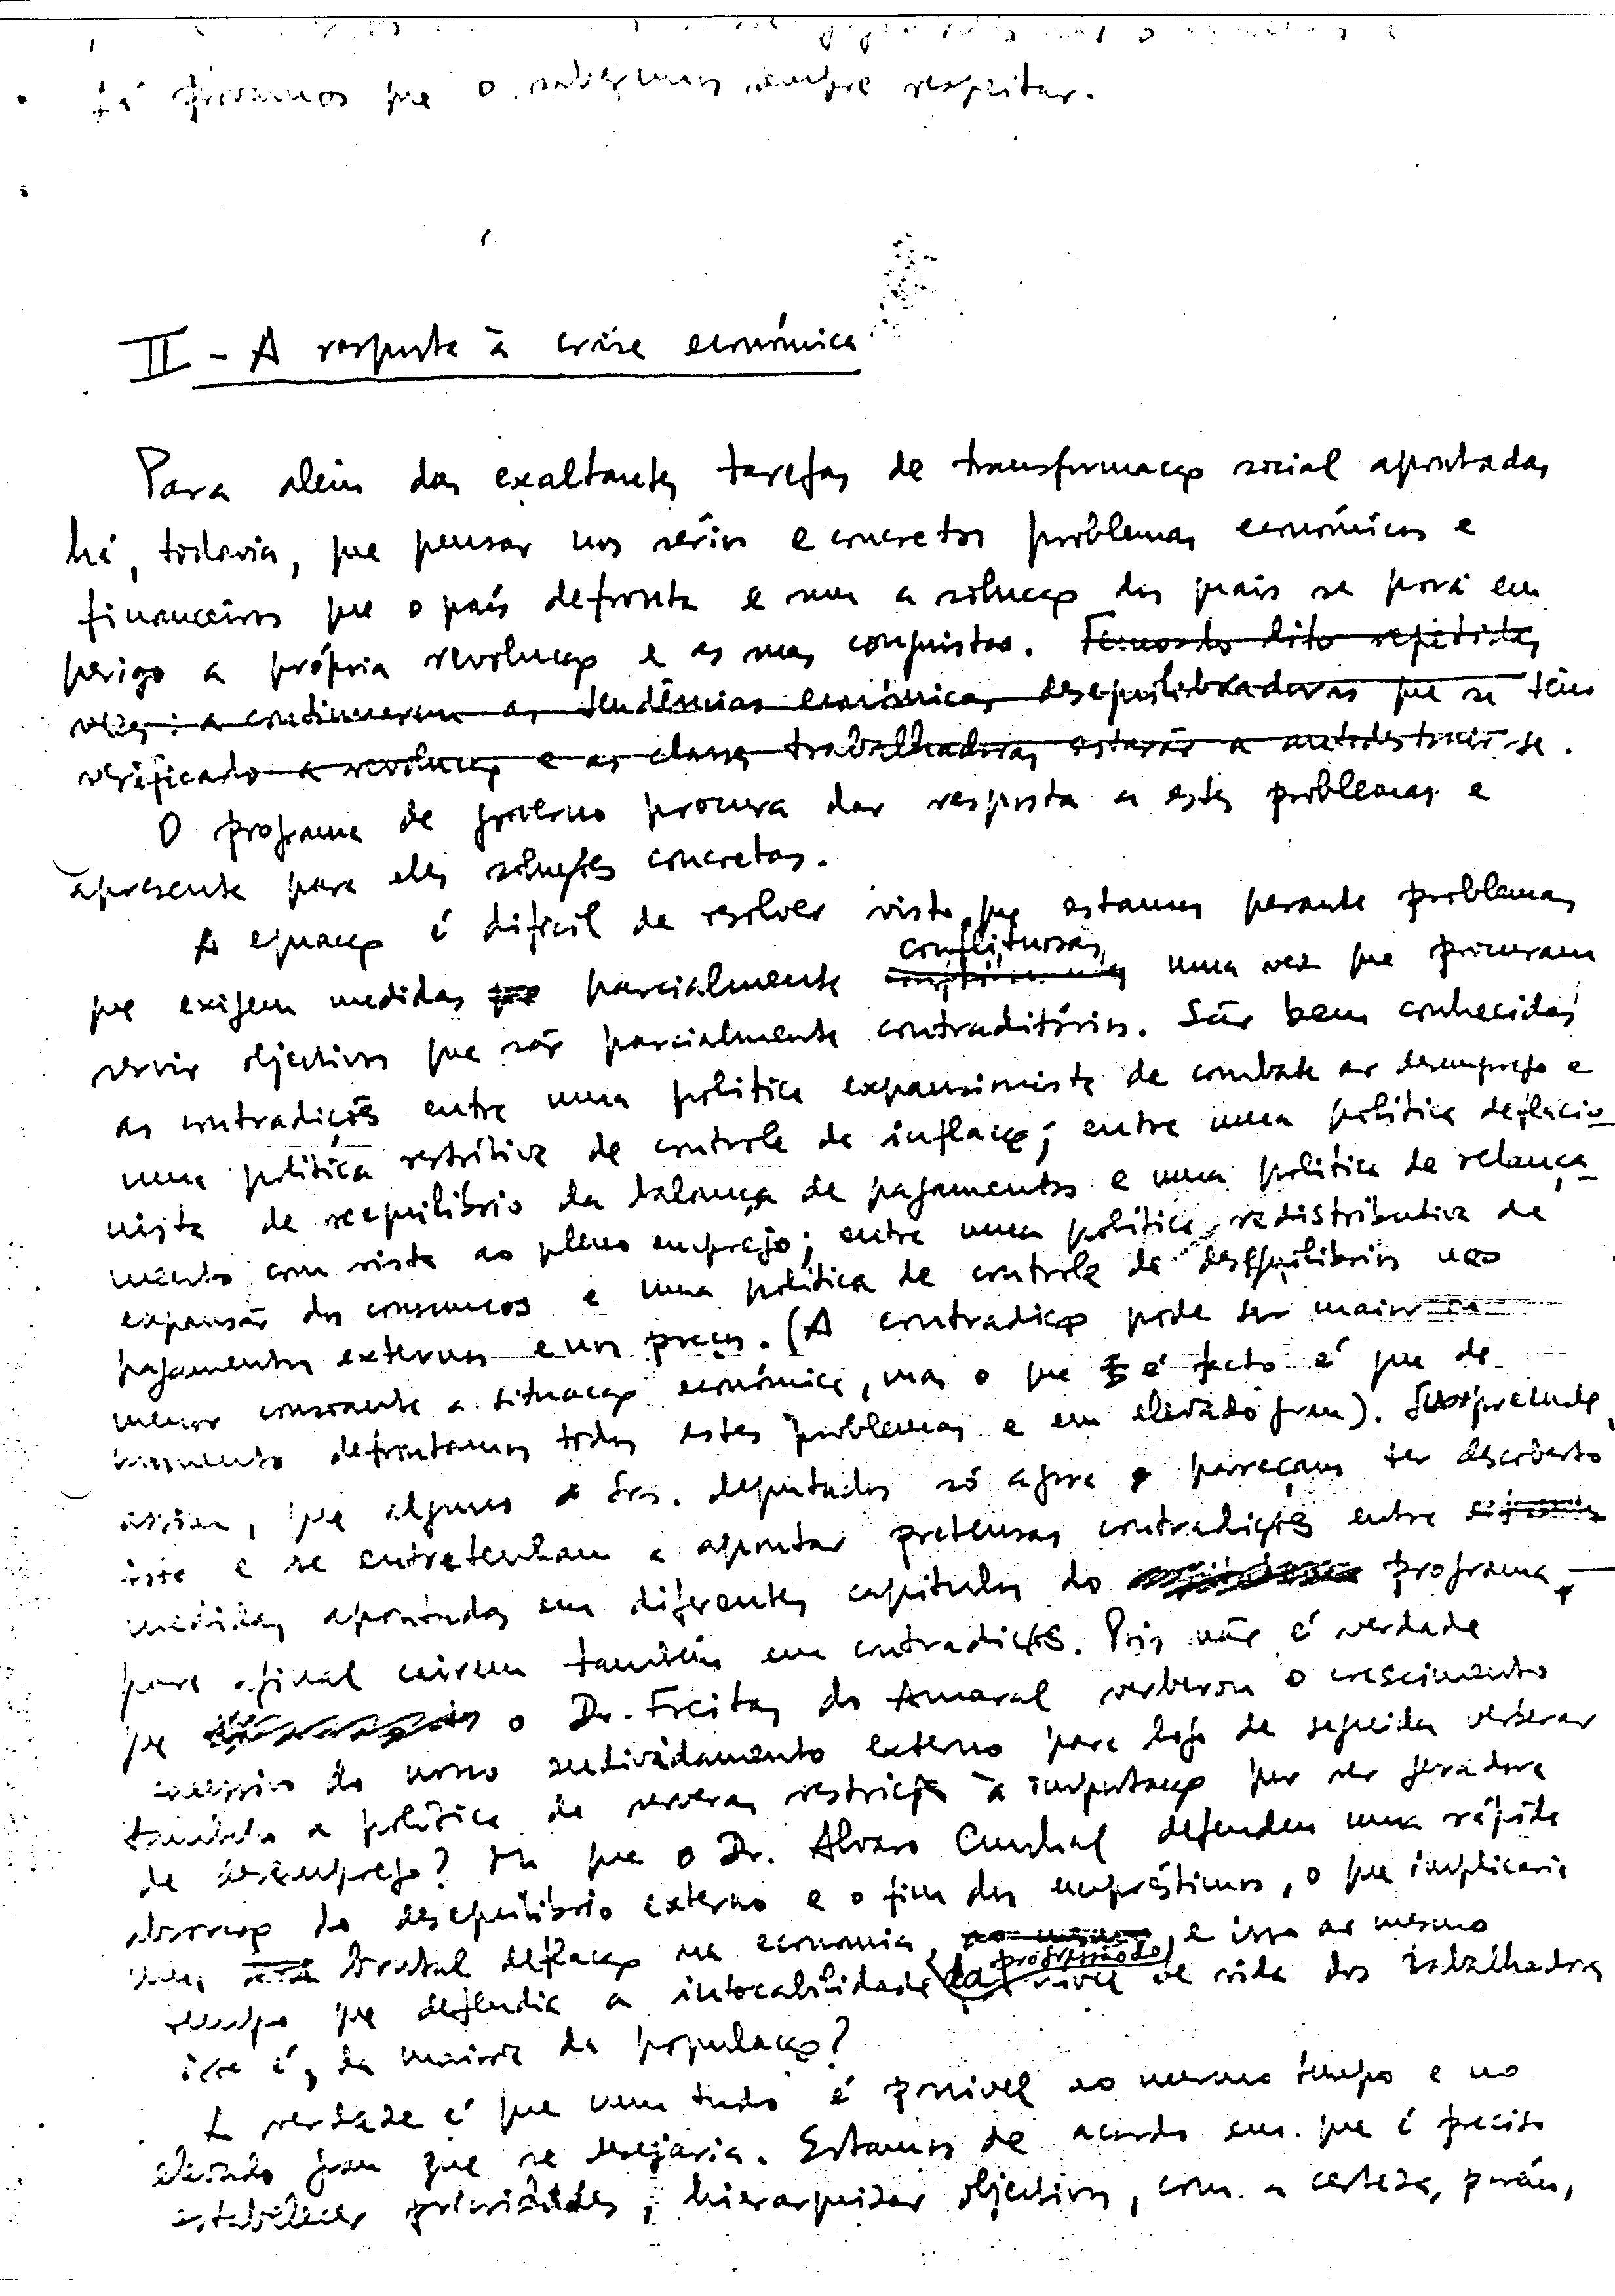 já provámos que o sabemos sempre respeitar.
II - A resposta à crise económica
Para além das exaltantes tarefas de transformação social apontadas
há, todavia, que pensar nos sérios e concretos problemas económicos e
financeiros que o país defronta e sem a solução dos quais se porá em
perigo a própria revolução e as suas conquistas. Temos dito repetidas
vezes: a continuarem as tendências económicas desequilibradoras que se têm
verificado a revolução e as classes trabalhadoras estarão a autodestruir-se.
O programa de governo procura dar resposta a estes problemas e
apresenta para eles soluções concretas.
A equação é difícil de resolver visto que estamos perante problemas
que exigem medidas que parcialmente conflituosas, uma vez que procuram
servir objectivos que são parcialmente contraditórios. São bem conhecidas
as contradições entre uma política expansionista de combate ao desemprego e
uma política restritiva de controle da inflação; entre uma política deflacio-
nista de reequilíbrio da balança de pagamentos e uma política de relança-
mento com vista ao pleno emprego; entre uma política redistributiva de
expansão dos consumos e uma política de controle de desequilíbrios nos
pagamentos externos e nos preços. (A contradição pode ser maior ou
menor consoante a situação económica, mas o que é facto é que de
momento defrontamos todos estes problemas e em elevado grau). Surpreende,
assim, que alguns Srs. deputados só agora pareçam ter descoberto
isto e se entretenham a apontar pretensas contradições entre
medidas apontadas em diferentes capítulos do programa,
para afinal caírem também em contradições. Pois não é verdade
que o Dr. Freitas do Amaral verberou o crescimento
excessivo do nosso endividamento externo para logo de seguida verberar
também a política de severas restrições à importação por ser geradora
de desemprego? Ou que o Dr. Alvaro Cunhal defendeu uma rápida
absorção do desequilíbrio externo e o fim dos empréstimos, o que implicaria
uma brutal deflação na economia, ao mesmo, e isso ao mesmo
tempo que defendia a intocabilidade da progressão do nível de vida dos trabalhadores
isto é, da maioria da população?
A verdade é que nem tudo é possível ao mesmo tempo e no
elevado grau que se desejaria. Estamos de acordo em que é preciso
estabelecer prioridades, hierarquizar objectivos, com a certeza, porém,